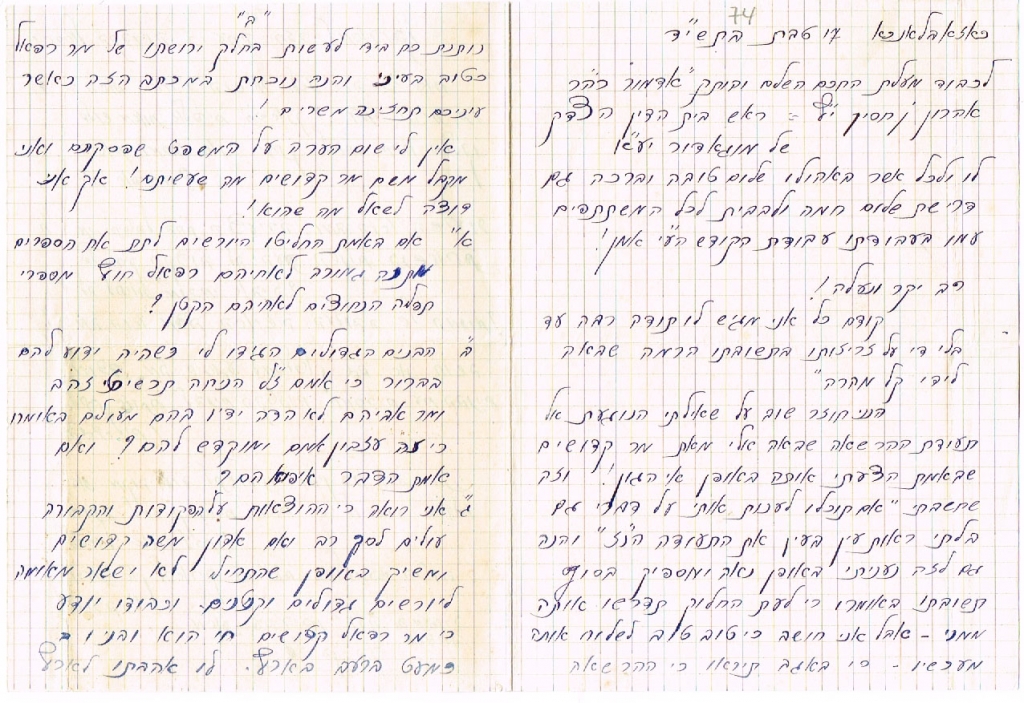 74
כאזאבלאנכא 17 טבת בתשי"ד
לכבוד מעלת החכם השלם והותק "אדמור כהר
אהרון ן' חסין יע"ץ = ראש בית הדין הצדק
של מוגאדור יע"א
לו ולכל אשר באהולו שלום טובה וברכה גם
דרישת שלום חמה ולבבית לכל המשתתפים
עמו בעבודתו עבודת הקודש הע"י אמן!
רב יקר ונעלה!
קודם כל אני מגיש לו תודה רבה עד
בלי די על זריזותו בתשובתו הרמה שבאה
לידי קל מהרה"
הנני חוזר שוב על שאילתי הנוגעת אל
תעודת ההרשאה שבאה אלי מאת מר קדושים
שבאמת הצעתי אותה באופן אי הגון! וזה
שחשבתי "אם תוכלו לענות אותי על דברי גם
בלתי ראות עין בעין את התעודה הנז" והנה
גם לזה נעניתי באופן נאה ומספיק בסוף
תשובתו באומרו כי לעת החלוק תדרשו אותה
ממני - אבל אני חושב כי טוב טוב לשלוח אותה
מעכשיו - כי באגב תיראו כי ההרשאה
"ב"
נותנת כח ביד לעשות בחלק ירושתו של מר רפאל
כטוב בעיני והנה נוכחת במכתב הזה כאשר
עיניכם תחזינה משרים!
אין לי שום הערה על המשפט שפסקתם ואני
מקבל משם מר קדושים מה שעשיתם! אך אני
רוצה לשאל מה שהוא!
א" אם באמת החליטו היורשים לתת את הספרים
מתנה גמורה לאחיהם רפאל חוץ מספרי
תפלה הנחוצים לאחיהם הקטן?
ב" הבנים הגדולים הגידו לי כשהיה ידוע להם
בברור כי אמם ז"ל הניחה תכשיטי זהב
ומר אביהם לא הרה ידיו בהם מעולם באומרו
כי זה עזבון אמם ומוקדש להם? ואם
אמת הדבר איפוא הם?
ג" אני רואה כי ההוצאות על הפקודות והקבורה
עולים לסך רב ואם אדון משה קדושים
ומשיך באופן שהתחיל לא ישאר מאומה
ליורשים גדולים וקטנים. וכבודו יודע
כי מר רפאל קדושים חי הוא ובניו ב
כמעט ברעב בארץ. לו אהבתו לארץ